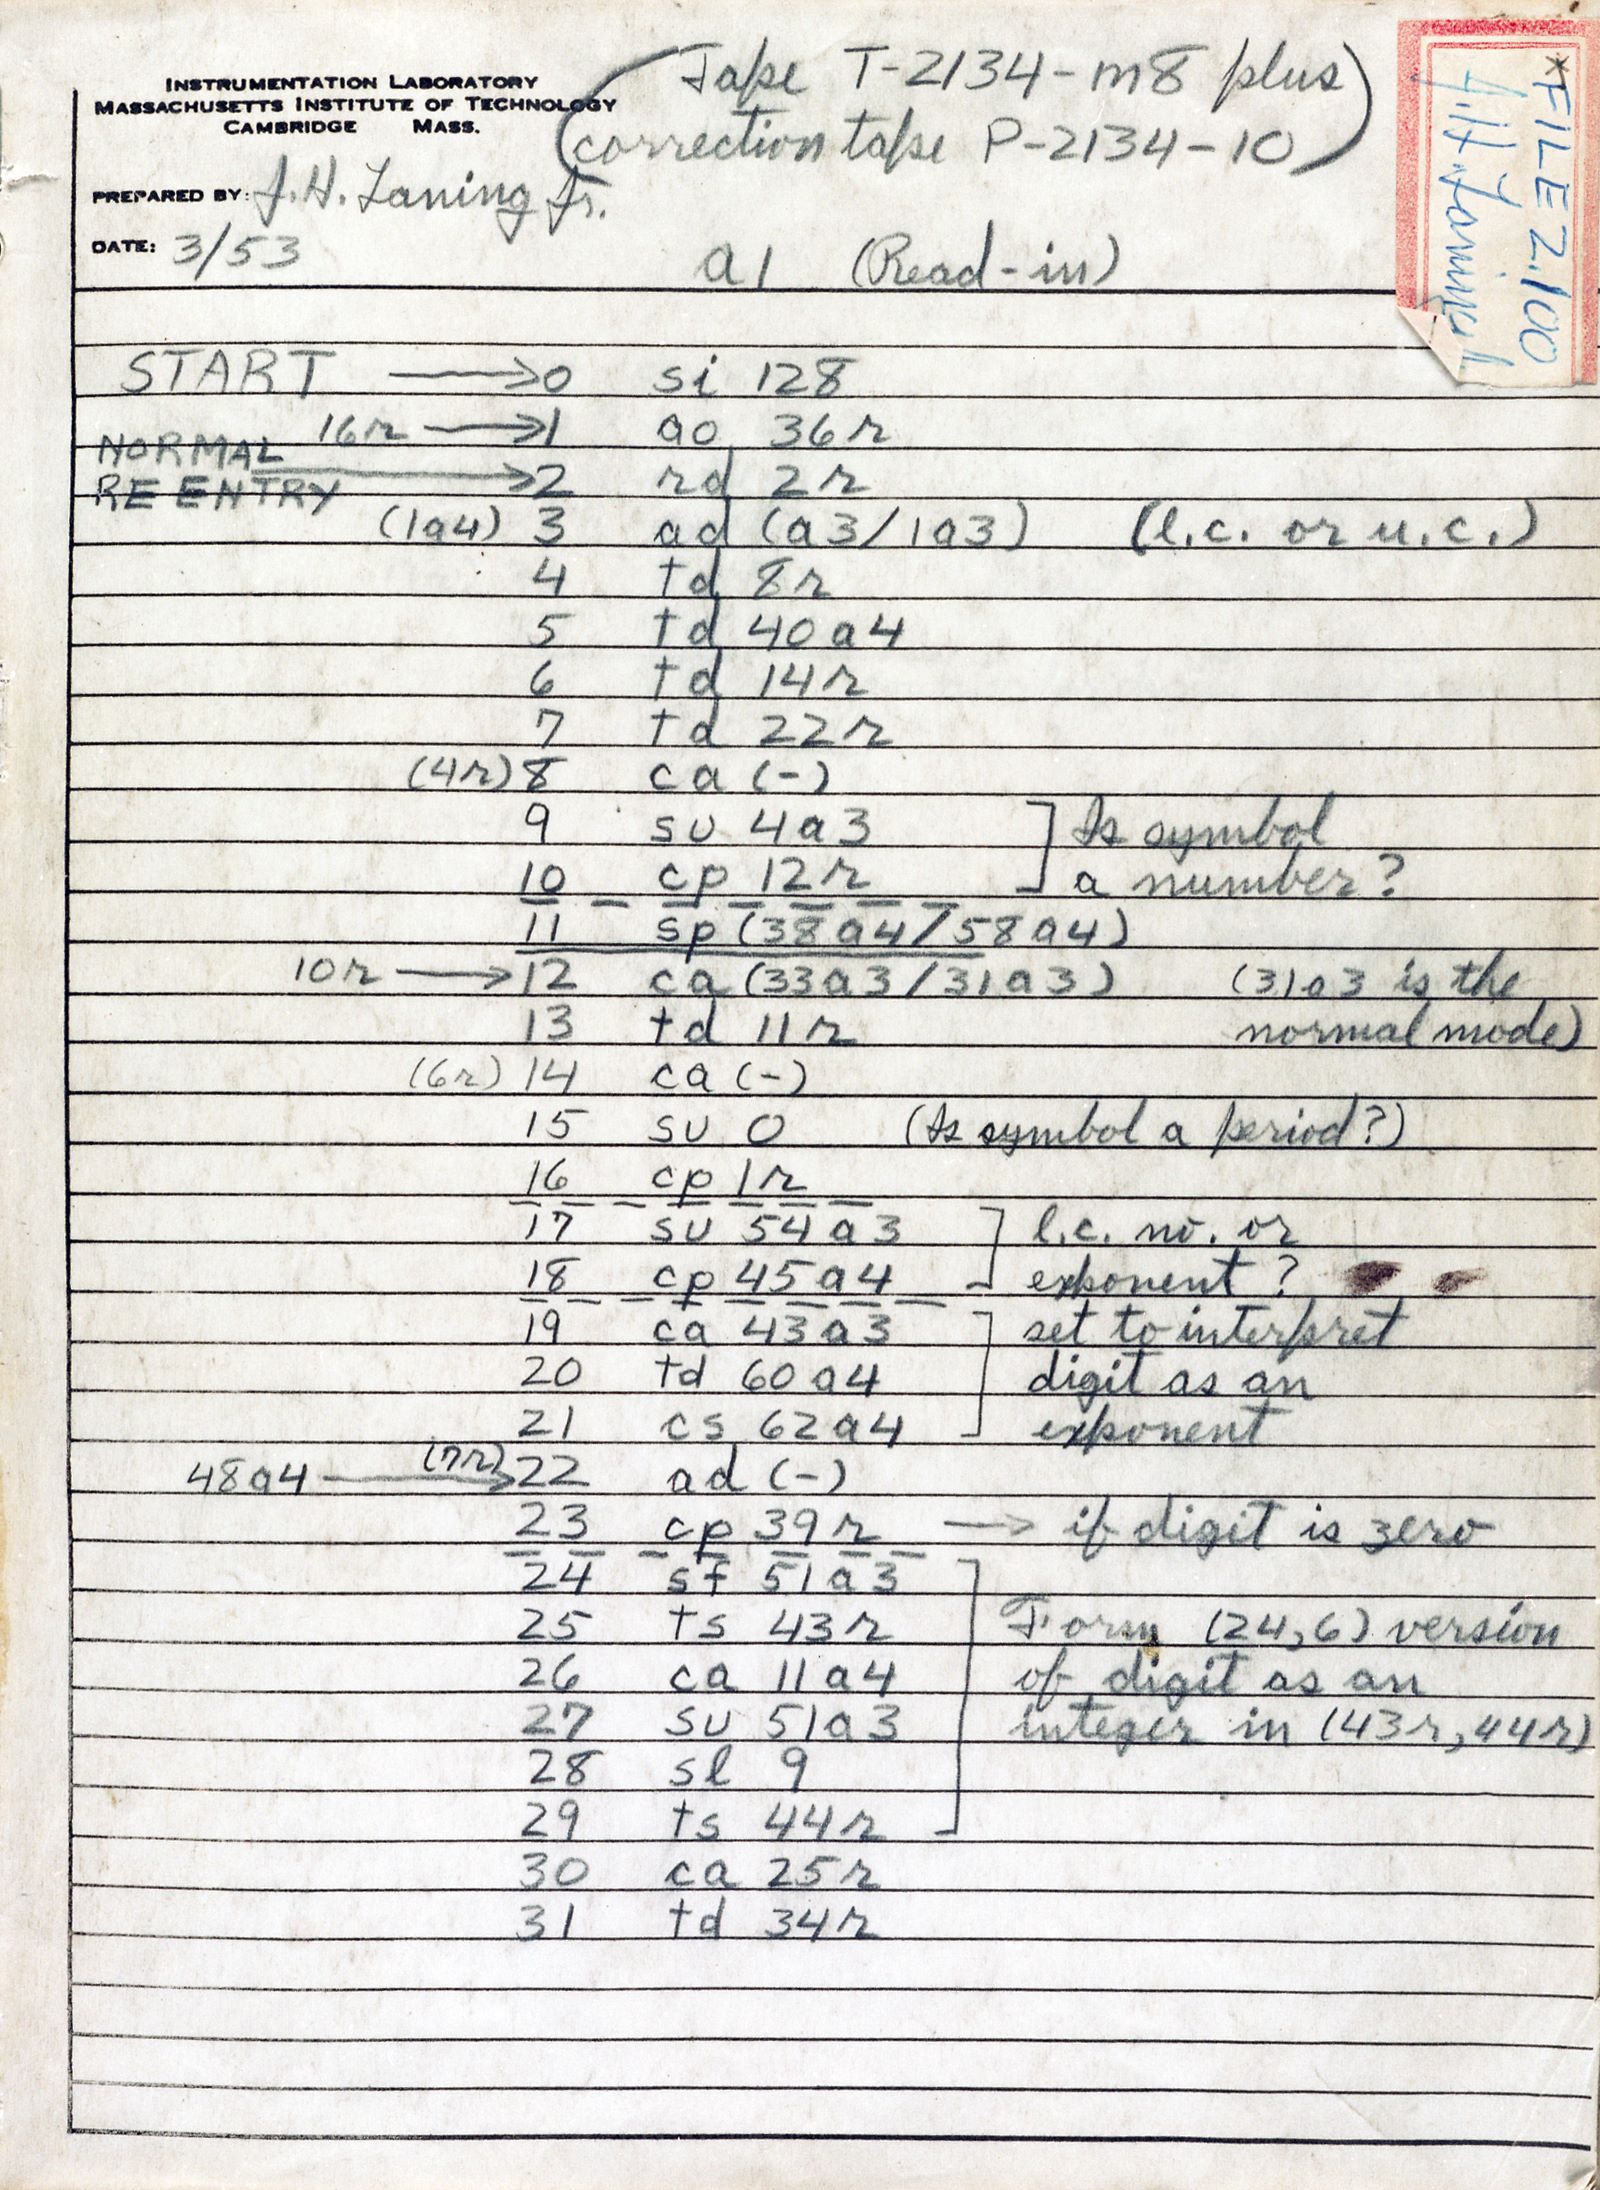 INSTRUMENTATION LABORATORY
MASSACHUSETTS INSTITUTE OF TECHNOLOGY
CAMBRIDGE MASS.
(Tape T-2134-m8 plus
correction tape P-2134-10)
*FILE 2.100
J.H. Laning
PREPARED BY: J. H. Laning Jr.
DATE: 3/53
a1 (Read-in)
START → 0 si 128
16r → 1 ao 36r
NORMAL REENTRY → 2 rd 2r
(1a4) 3 ad (a3/1a3) (l.c. or u.c.)
4 td 8r
5 td 40a4
6 td 14r
7 td 22r
(4r) 8 ca (-)
9 su 4a3 ] Is symbol
10 cp 12r ] a number?
11 sp (38a4/58a4)
10r → 12 ca (33a3/31a3) (31a3 is the
13 td 11r normal mode)
(6r) 14 ca (-)
15 su 0 (Is symbol a period?)
16 cp 1r
17 su 54a3 ] l.c. no. or
18 cp 45a4 ] exponent?
19 ca 43a3 ] set to interpret
20 td 60a4 digit as an
21 cs 62a4 ] exponent
48a4 → (7r) 22 ad (-)
23 cp 39r → if digit is zero
24 sf 51a3 ]
25 ts 43r Form (24,6) version
26 ca 11a4 of digit as an
27 su 51a3 integer in (43r, 44r)
28 sl 9
29 ts 44r ]
30 ca 25r
31 td 34r